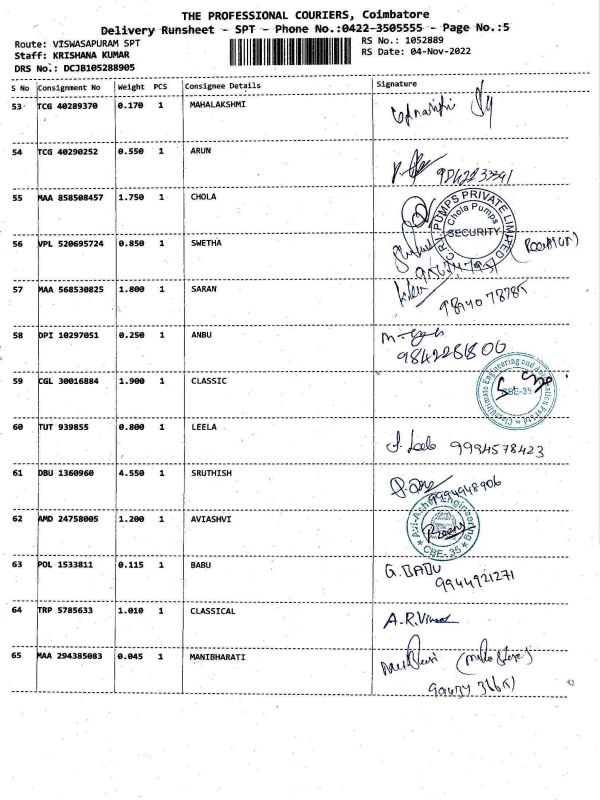 THE PROFESSIONAL COURIERS, Coimbatore
Delivery Runsheet - SPT - Phone No.:0422-3505555 - Page No.:5
Route: VISWASAPURAM SPT
RS No.: 1052889
Staff: KRISHANA KUMAR
RS Date: 04-Nov-2022
DRS No.: DCJB105288905
S No Consignment No Weight PCS Consignee Details Signature
53 TCG 40289370 0.170 1 MAHALAKSHMI
54 TCG 40290252 0.550 1 ARUN
55 MAA 858508457 1.750 1 CHOLA
CRI PUMPS PRIVATE LIMITED
Chola Pumps
SECURITY
56 VPL 520695724 0.850 1 SWETHA
57 MAA 568530825 1.800 1 SARAN
9894078785
58 DPI 10297051 0.250 1 ANBU
59 CGL 30016884 1.900 1 CLASSIC
CBE-35
60 TUT 939855 0.800 1 LEELA
9994578423
61 DBU 1360960 4.550 1 SRUTHISH
9994948906
62 AMD 24758005 1.200 1 AVIASHVI
Avi-Ashvi Engineering
CBE-35
63 POL 1533811 0.115 1 BABU
G. BABU
9944921271
64 TRP 5785633 1.010 1 CLASSICAL
65 MAA 294385083 0.045 1 MANIBHARATI